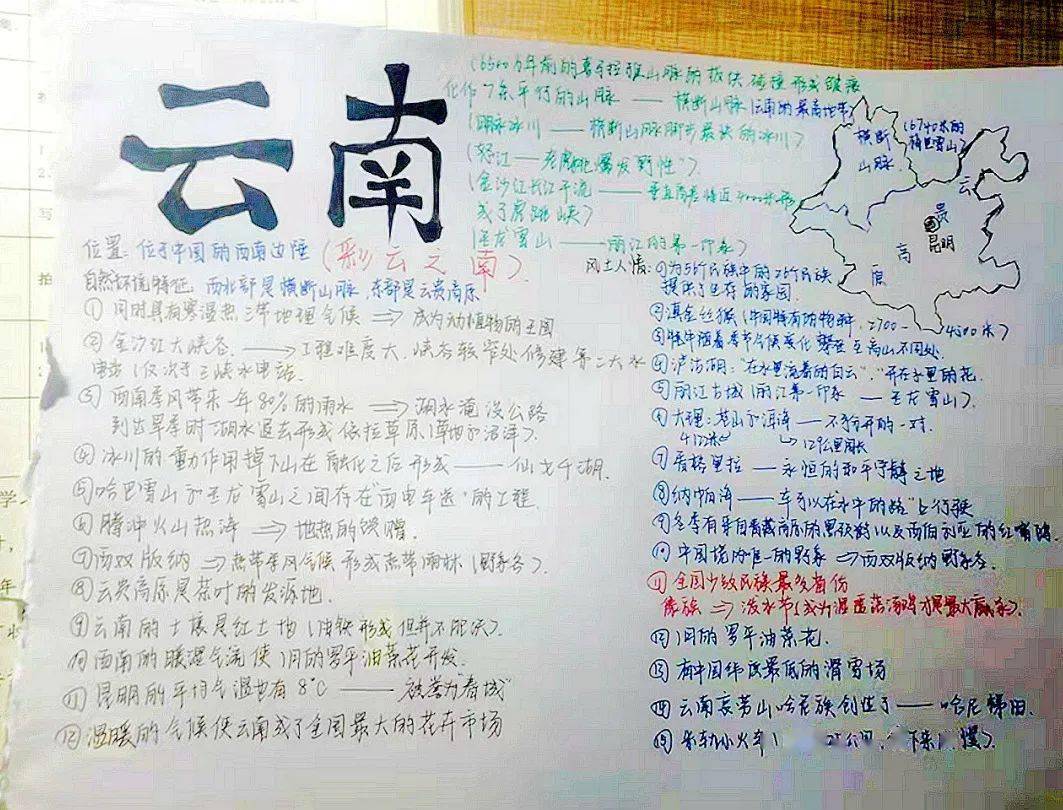 云南
(6500万年前的喜马拉雅山脉的板块碰撞形成皱褶
化作7条平行的山脉——横断山脉(云南的最高地带)
(明永冰川——横断山脉脚步最快的冰川)
(怒江——老虎跳爆发野性")
(金沙江长江干流——垂直高差接近4000米形
成了虎跳峡)
(玉龙雪山——丽江的第一印象)
横断
山脉
(6740米的
梅里雪山)
云
贵
昆明
高
原
位置:位于中国的西南边陲(彩云之南).
自然环境特征:西北部是横断山脉,东部是云贵高原
①同时具有寒温热三带地理气候⇒成为动植物的王国
②金沙江大峡谷.→工程难度大.峡谷较窄处修建第二大水
电站(仅次于三峡水电站.
③西南季风带来一年80%的雨水⇒湖水淹没公路
到出旱季时湖水退去形成依拉草原(草地和沼泽).
④冰川的重动作用掉下山在融化之后形成——仙女千湖.
⑤哈巴雪山和玉龙雪山之间存在"西电东送"的工程.
⑥腾冲火山热海⇒地热的馈赠.
⑦西双版纳⇒热带季风气候形成热带雨林(野象谷).
⑧云贵高原是茶叶的发源地.
⑨云南的土壤是红土地(由铁形成但并不肥沃).
⑩西南的暖湿气流使1月的罗平油菜花开发.
⑪昆明的年均气温也有8℃——被誉为"春城"
⑫温暖的气候使云南成了全国最大的花卉市场
风土人情:①为56个民族中的26个民族
提供了生存的家园.
②滇金丝猴(中国特有的物种,2700-4300米)
③牦牛随着季节气候变化攀登至高山不同处.
④泸沽湖:"在水里流着的白云","开在水里的花.
⑤丽江古城(丽江第一印象——玉龙雪山).
⑥大理:苍山和洱海——不分开的一对.
⑦香格里拉——永恒的和平宁静之地
⑧纳帕海——车可以在水中的路"上行驶
⑨冬季有来自青藏高原的黑颈鹤以及西伯利亚的红嘴鸥.
⑩中国境内唯一的野象⇒西双版纳野象谷.
⑪全国少数民族最多省份
傣族⇒泼水节(成为湿透落汤鸡才是最大赢家).
⑫1月的罗平油菜花.
⑬有中国纬度最低的滑雪场
⑭云南哀劳山哈尼族创造了——哈尼梯田.
⑮米轨小火车( 公里,下来),慢).